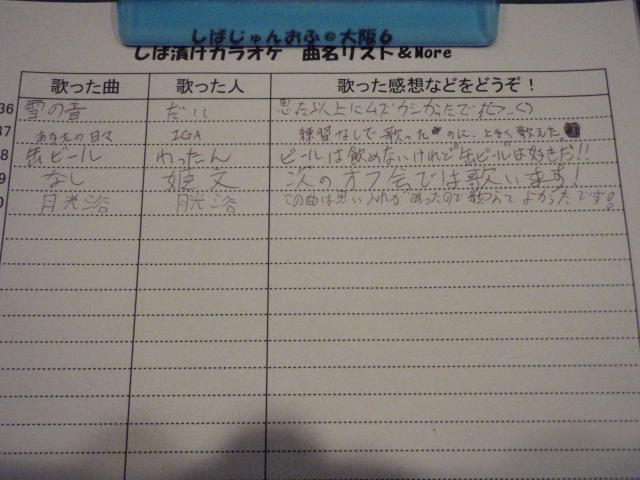 しばじゅんおふ@大阪6
しば漬けカラオケ 曲名リスト&More
歌った曲 歌った人 歌った感想などをどうぞ!
36 雪の音 だい 思った以上にムズカシかったです(>_<)
37 あなたの日々 IGA 練習なしで歌ったのに、上手く歌えた。
8 缶ビール わったん ビールは飲めないけれど缶ビールは好きだ!!
9 なし 姫文 次のオフ会では歌います!
0 月光浴 この曲は思い入れがあったので歌えてよかったです!